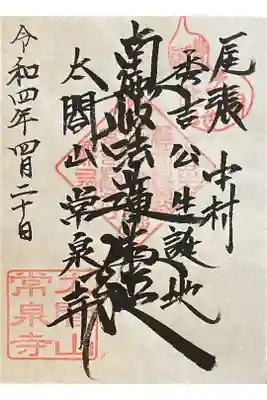 尾張 中村
秀吉公生誕地
南無妙法蓮華経
太閤山 常泉寺
令和四年 四月二十日
太閤山
常泉寺